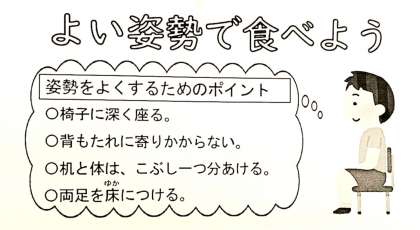 よい姿勢で食べよう
姿勢をよくするためのポイント
○椅子に深く座る。
○背もたれに寄りかからない。
○机と体は、こぶし一つ分あける。
ゆか
○両足を床につける。